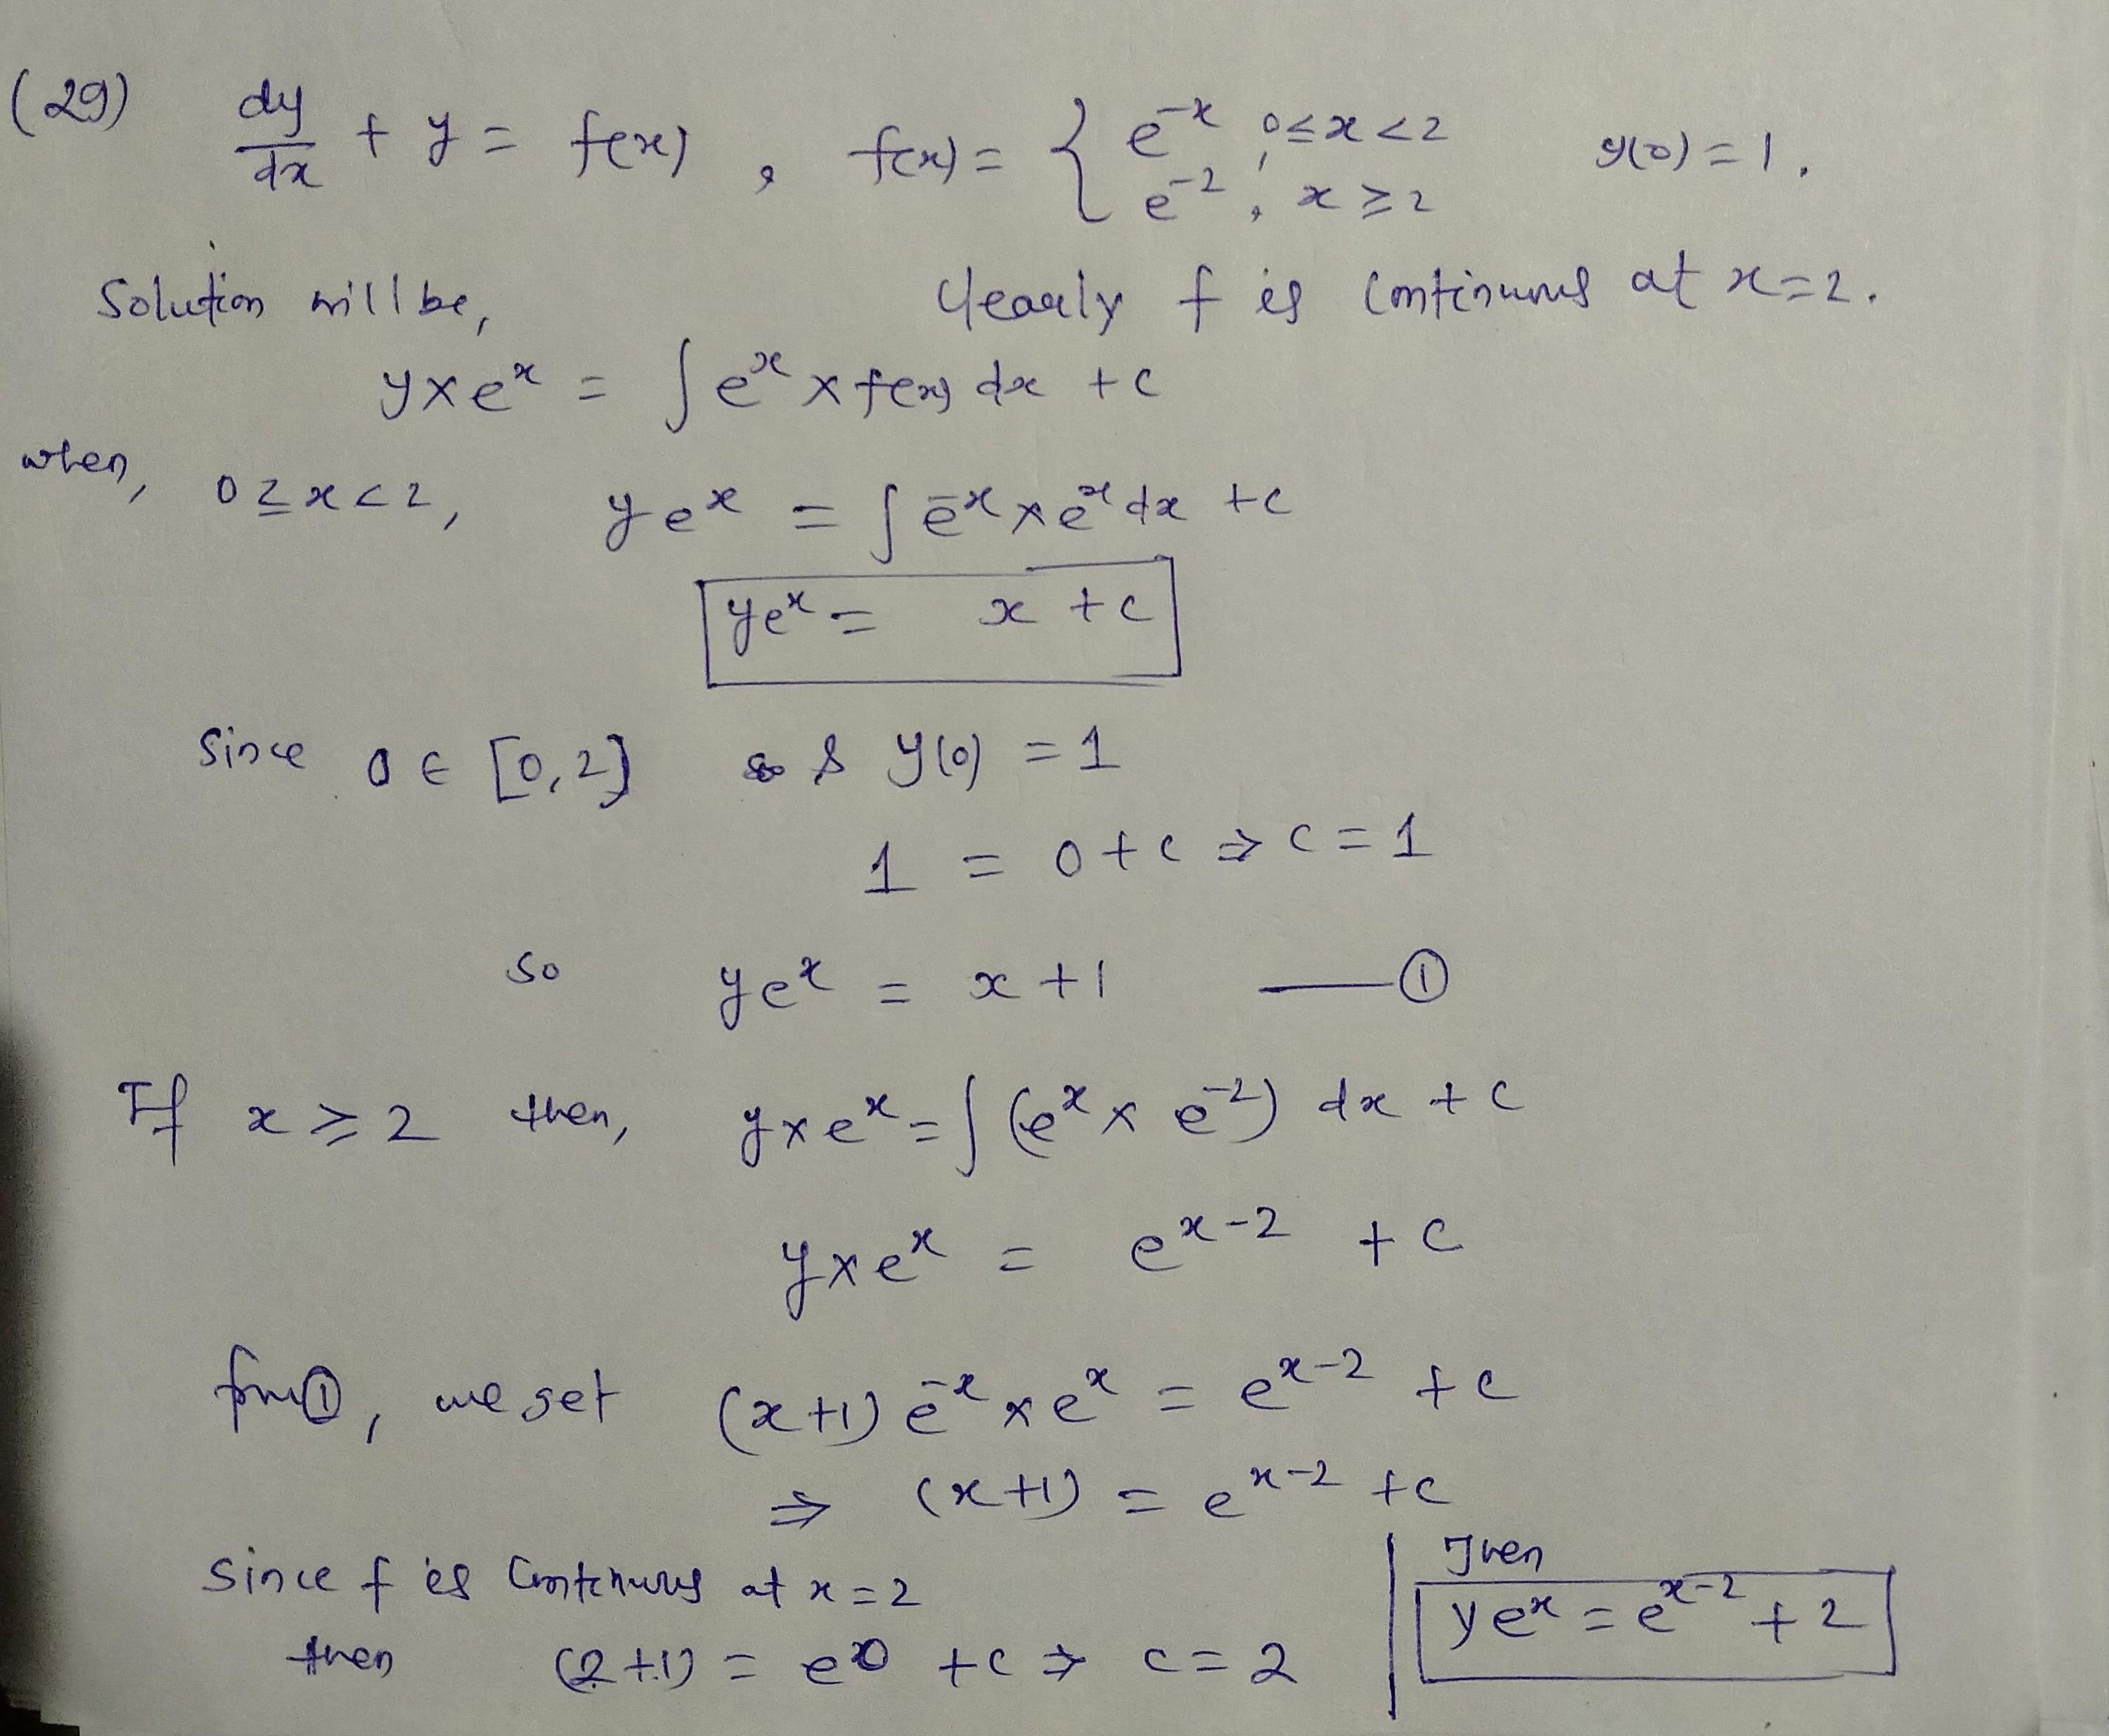 (29) dy/dx + y = f(x) , f(x) = { e^-x , 0≤x<2 y(0) = 1 .
e^-2 , x ≥ 2
Solution will be, Clearly f is continuous at x=2.
y×e^x = ∫e^x × f(x) dx + c
when, 0≥x<2, ye^x = ∫e^-x × e^x dx + c
ye^x = x + c
Since 0 ∈ [0,2] & y(0) = 1
1 = 0 + c ⇒ c = 1
so ye^x = x + 1 —— ①
If x ≥ 2 then, y×e^x = ∫(e^x × e^-2) dx + c
y×e^x = e^x-2 + c
from ①, we get (x+1) e^-x × e^x = e^x-2 + c
⇒ (x+1) = e^x-2 + c
Since f is continuous at x=2
then (2+1) = e^0 + c ⇒ c = 2
Then
ye^x = e^x-2 + 2